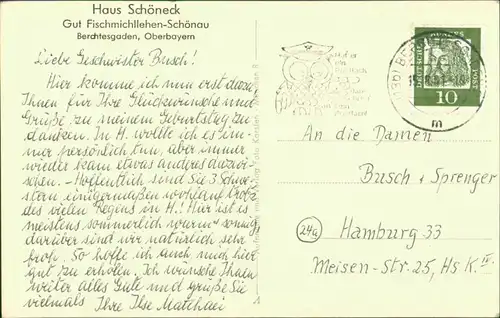 Haus Schöneck
Gut Fischmichllehen-Schönau
Berchtesgaden, Oberbayern
Liebe Geschwister Busch!
Hier komme ich nun erst dazu,
Ihnen für Ihre Glückwünsche und
Grüße zu meinem Geburtstag zu
danken. In H. wollte ich es im-
mer persönlich tun, aber immer
wieder kam etwas anderes dazwi-
schen. - Hoffentlich sind Sie 3 Schwe-
stern einigermaßen wohlauf trotz
des vielen Regens in H.! Hier ist es
meistens sommerlich warm + sonnig,
darüber sind wir natürlich sehr
froh. So hoffe ich auch mich hier
gut zu erholen. Ich wünsche Ihnen
weiter alles Gute und grüße Sie
vielmals Ihre Ilse Matthaei
10
m
An die Damen
Busch + Sprenger
24a
Hamburg 33
Meisen-Str. 25, Hs K II.